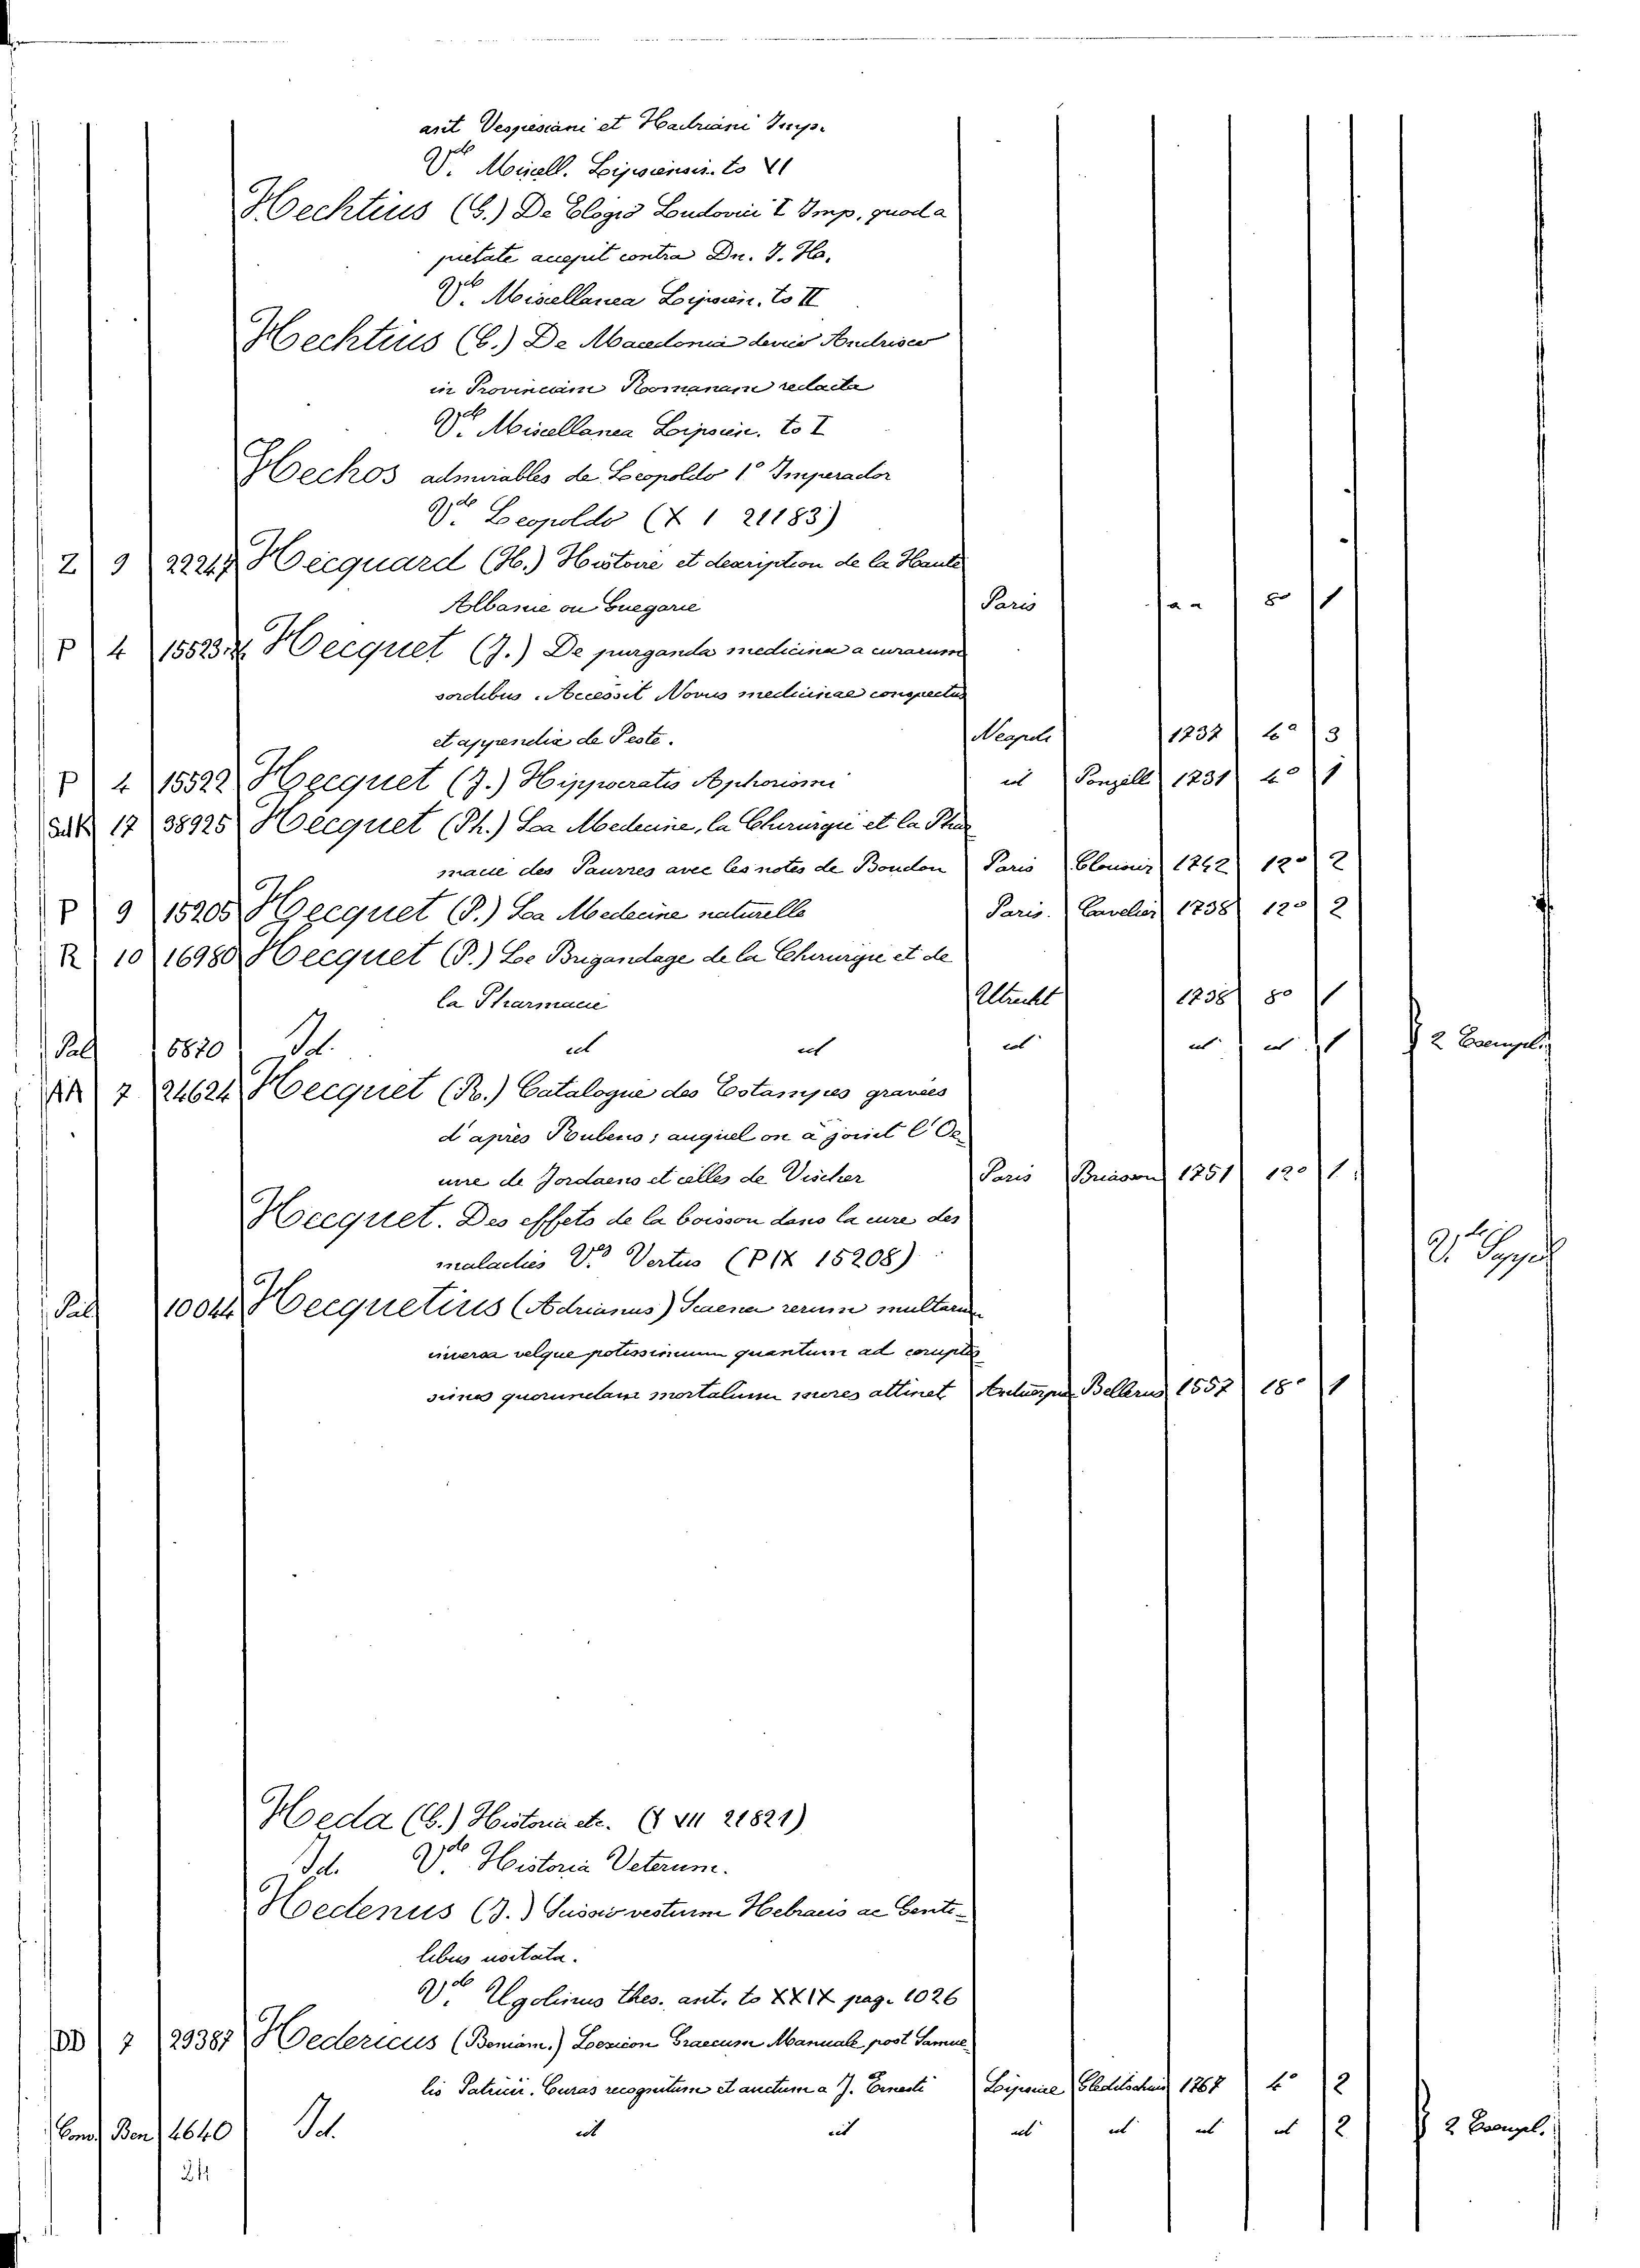 asit Vespesiani et Hadriani Imp.
V.de Miscell. Lipsiensis. to VI
Hechtius (G.) De Elogio Ludovici I Imp, quod a
pietate accepit contra Dn. J. Ha.
V.de Miscellanea Lipsien. to II
Hechtius (G.) De Macedonia devicto Andrisco
in Provinciam Romanam redacta
V.de Miscellanea Lipsien. to I
Hechos admirables de Leopoldo 1º Imperador
V.de Leopoldo (X 1 21183)
Z 9 22247 Hecquard (H.) Histoire et description de la Haute
Albanie ou Guegarie Paris s a a 8º 1
P 4 15523.24 Hecquet (J.) De purganda medicina a curarum
sordibus. Accessit Novus medicinae conspectus
et appendix de Peste. Neapoli 1737 4º 3
P 4 15522 Hecquet (J.) Hippocratis Aphorismi id Ponzell 1731 4º 1
17 38925 Hecquet (Ph.) La Medecine, la Chirurgie et la Phar
macie des Pauvres avec les notes de Boudon Paris Clousier 1742 12º 2
P 9 15205 Hecquet (P.) La Medecine naturelle Paris. Cavelier 1738 12º 2
R 10 16980 Hecquet (P.) Le Brigandage de la Chirurgie et de
la Pharmacie Utrecht 1738 8º 1
Pal 6870 Id. id id id id id 1 2 Exempl.
7 24624 Hecquet (R.) Catalogue des Estampes gravées
d'après Rubens; auquel on a joint l'Oe
uvre de Jordaens et celles de Vischer Paris Briasson 1751 12º 1
Hecquet. Des effets de la boisson dans la cure des
maladies V.de Vertus (P IX 15208)
Pal 10044 Hecquetius (Adrianus) Scena rerum multarum
inversa velque potissimum quantum ad coruptis
simos quorundam mortalium mores attinet Antuerpiae Bellerus 1557 18º 1
Heda (G.) Historia etc. (X VII 21821)
Id. V.de Historia Veterum.
Hedenus (J.) Scissio vestium Hebraeis ac Genti-
libus usitata.
V.de Ugolinus thes. ant. to XXIX pag. 1026
DD 7 29387 Hedericus (Beniam.) Lexicon Graecum Manuale post Samue
lis Patricii. Curas recognitum et auctum a J. Ernesti Lipsiae Gleditschius 1767 4º 2
Conv. Ben 4640 Id. id id id id id id 2 2 Exempl.
24